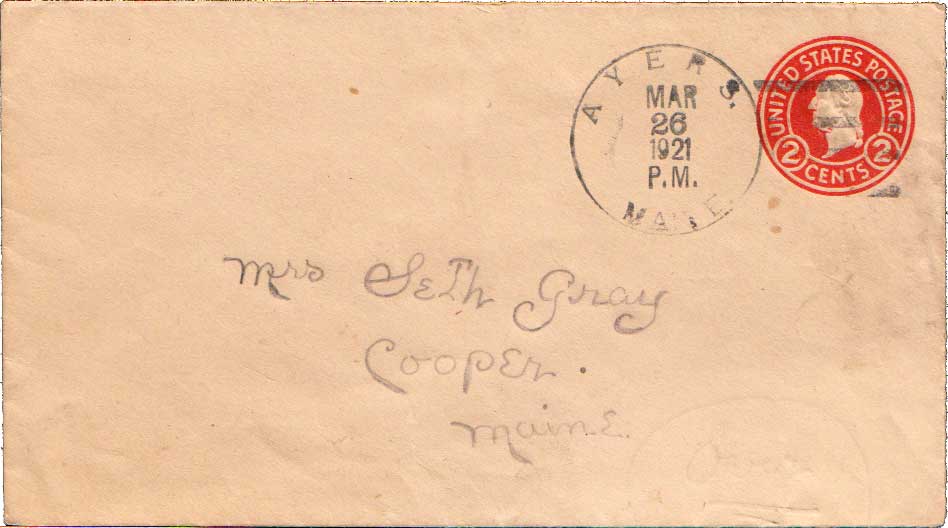 AYERS.
MAR
26
1921
P.M.
MAINE
UNITED STATES POSTAGE
2 CENTS 2
Mrs Seth Gray
Cooper.
Maine.